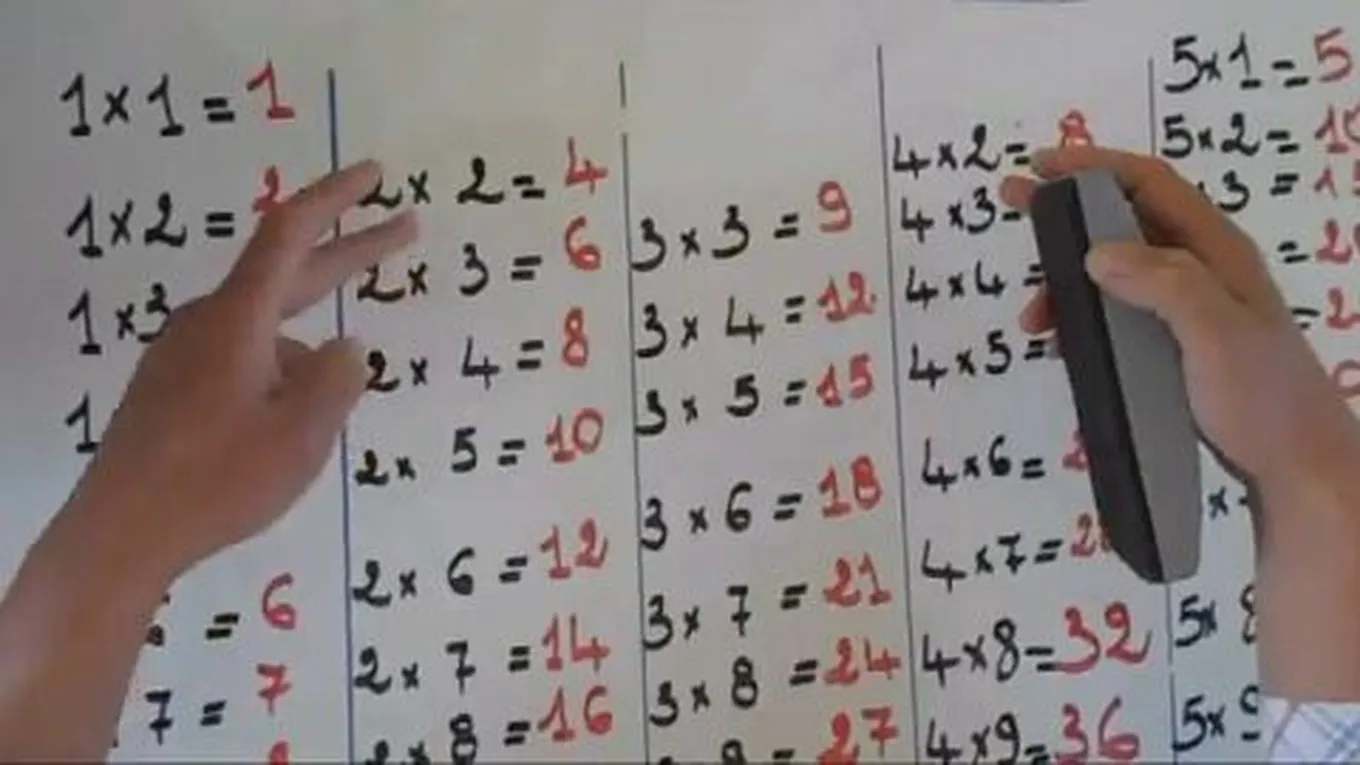 1 x 1 = 1
1 x 2 = 2
1 x 3
1
= 6
7 = 7
2 x 2 = 4
2 x 3 = 6
2 x 4 = 8
2 x 5 = 10
2 x 6 = 12
2 x 7 = 14
2 x 8 = 16
3 x 3 = 9
3 x 4 = 12
3 x 5 = 15
3 x 6 = 18
3 x 7 = 21
3 x 8 = 24
= 27
4 x 2 = 8
4 x 3 =
4 x 4 =
4 x 5 =
4 x 6 = 2
4 x 7 = 2
4 x 8 = 32
4 x 9 = 36
5 x 1 = 5
5 x 2 = 10
3 = 15
= 2
= 2
x
5 x 8
5 x 9